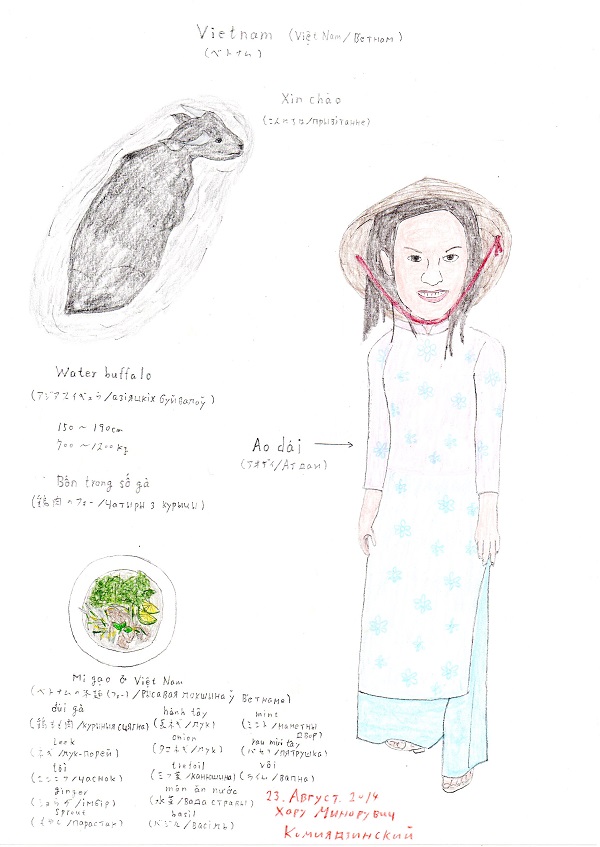 Vietnam (Việt Nam/Вʼетнам)
(ベトナム)
Xin chào
(こんにちは/прывітанне)
Water buffalo
(アジアスイギュウ/азіяцкіх буйвалоў)
150 ~ 190cm
700 ~ 1200kg
Ao dài
(アオザイ/Ао дай)
Bốn trong số gà
(鶏肉のフォー/Чатыры з курыцы)
Mì gạo ở Việt Nam
(ベトナムの米麺(フォー)/Рысавая локшына ў Вʼетнаме)
đùi gà
(鶏もも肉/курыныя сцягна)
hành tây
(玉ねぎ/лук)
mint
(ミント/манетны двор)
Leek
(ネギ/лук-порей)
onion
(タマネギ/лук)
rau mùi tây
(パセリ/пятрушка)
tỏi
(ニンニク/часнок)
trefoil
(三つ葉/канюшына)
vôi
(ライム/вапна)
ginger
(ショウガ/імбір)
món ăn nước
(水菜/вада стравы)
Sprout
(もやし/парастак)
basil
(バジル/васіль)
23. Август. 2014
Хару Минорувич
Комиядзинский